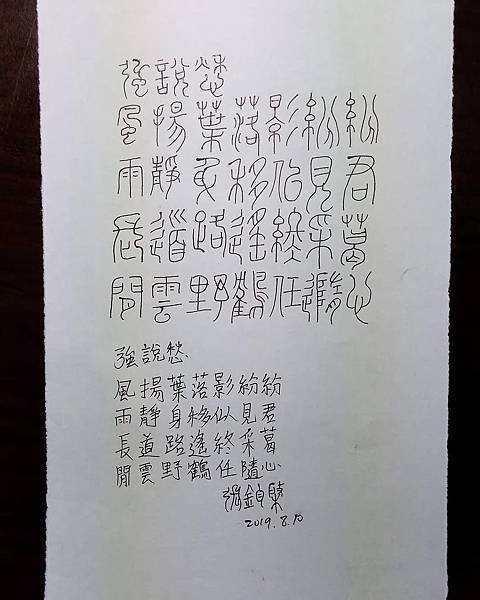 強說愁
風揚葉落影紛紛
雨靜身移似見君
長道路遙終采葛
閒雲野鶴任隨心
強說愁
風揚葉落影紛紛
雨靜身移似見君
長道路遙終采葛
閒雲野鶴任隨心
張
2019.8.10